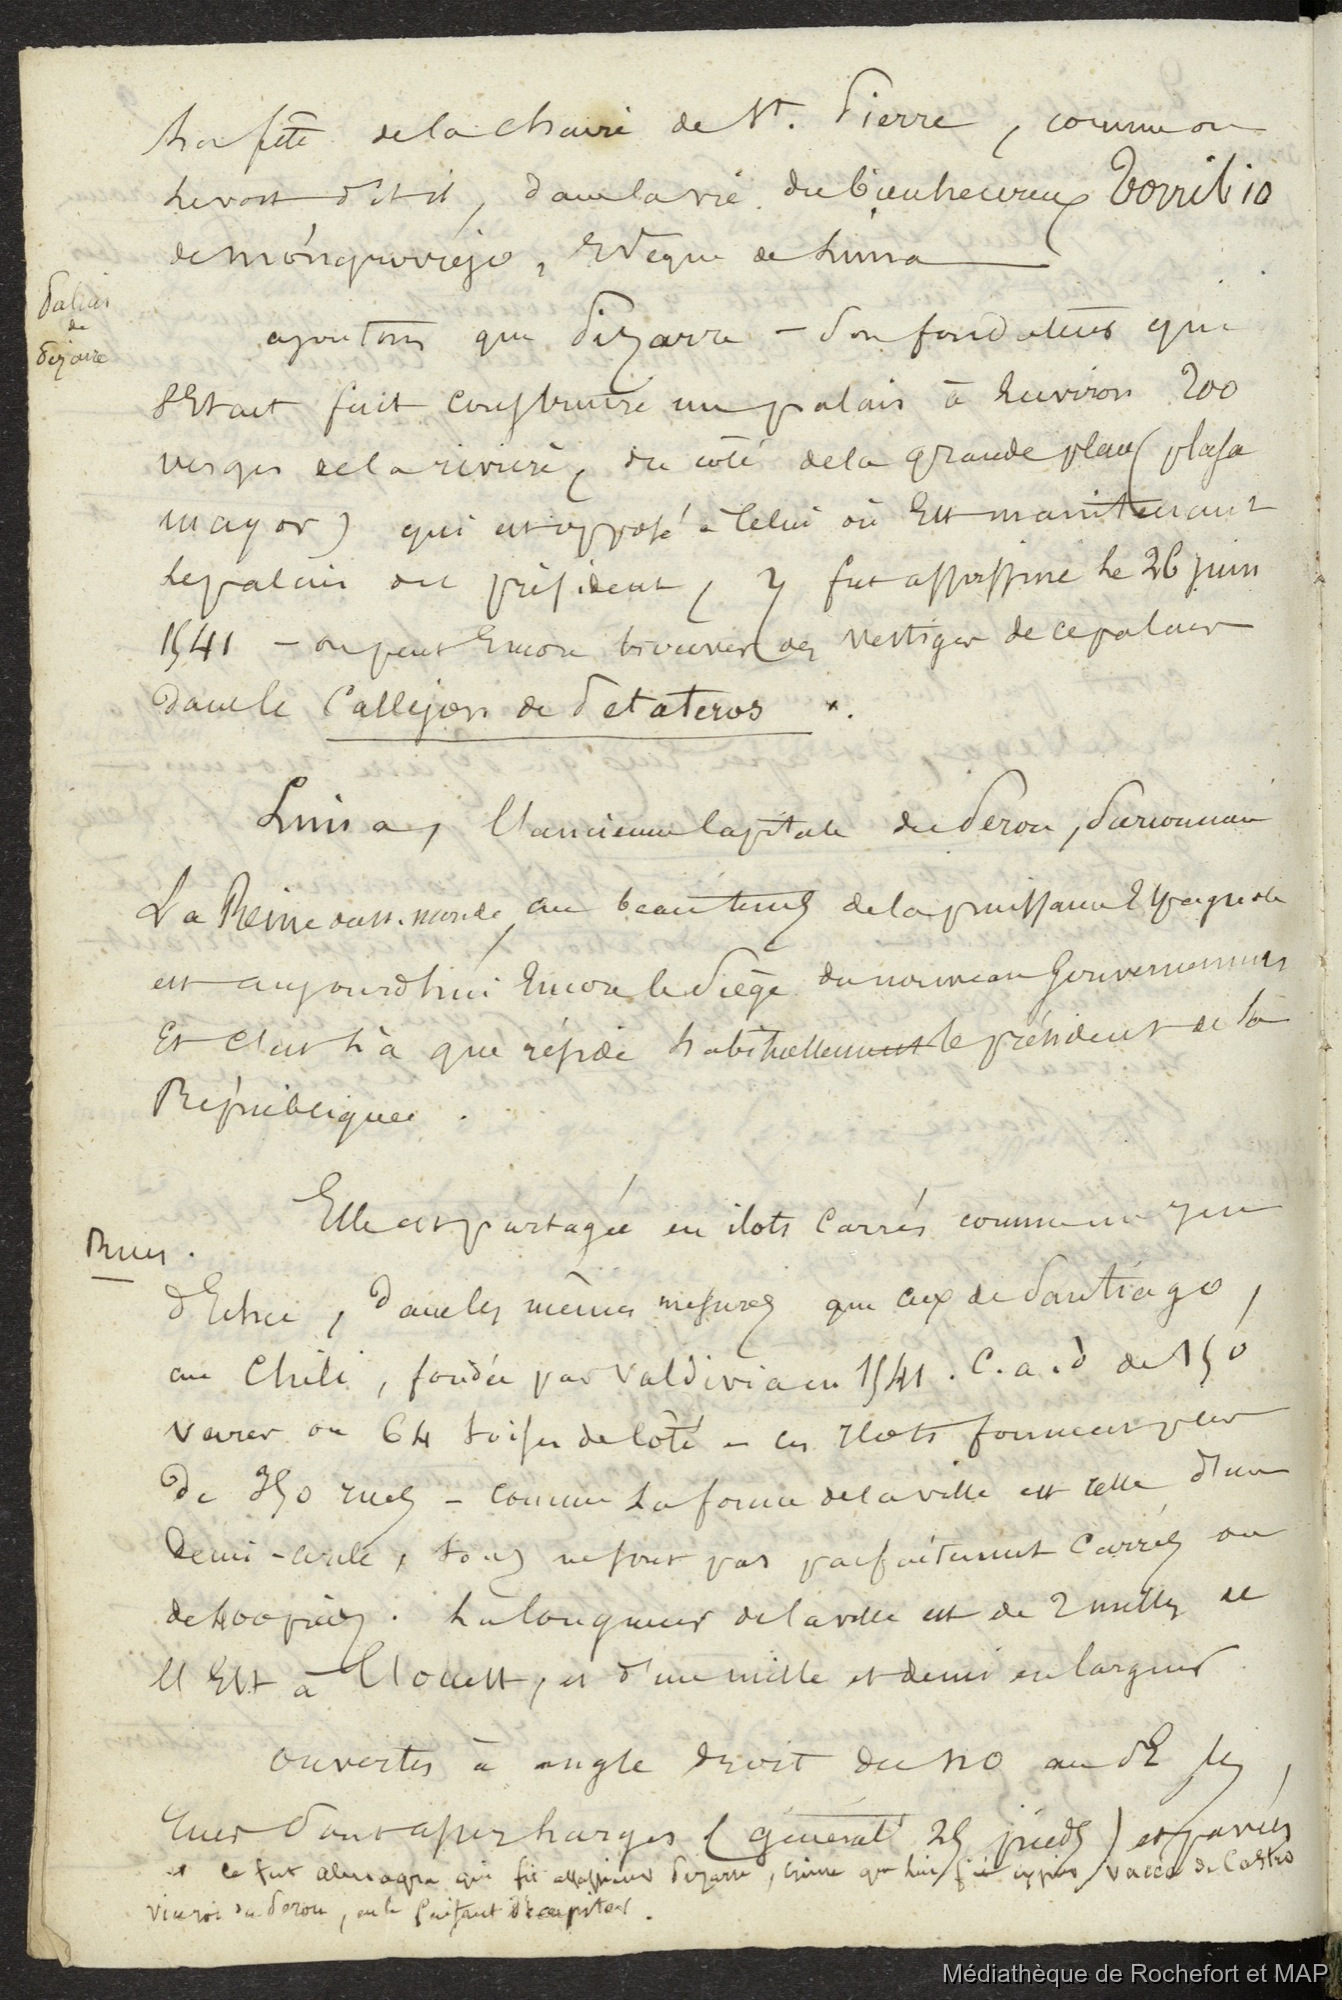 La fête de la chaire de St. Pierre, comme on
le voit dit-il, dans la vie du bienheureux Torribio
de Mongrovejo, Evêque de Lima
Palais
de
Pizarre
ajoutons que Pizarre – Son fondateur qui
s'Etait fait construire un palais à Environ 200
verges de la rivière, du côté de la grande place (plaza
mayor) qui est opposé à Celui où Est maintenant
le palais du président, y fut assassiné le 26 juin
1541 – on peut Encore trouver des vestiges de ce palais
dans le Callejon de Petateros x.
Lima, l'ancienne Capitale du Perou, Surnommée
La Reine du n. monde, au beau tems de la puissance Espagnole
est aujourdhui Encore le Siège du nouveau Gouvernement
Et c'est là que réside habituellement le président de la
République.
Rues.
Elle est partagée en ilots Carrés comme un jeu
d'Echec, dans les mêmes mesures que ceux de Santiago,
au Chili, fondée par Valdivia en 1541. C. a. d de 150
varas ou 64 toises de Côté – ces Ilots forment plus
de 350 rues – comme la forme de la ville est celle d'un
demi-cercle, tous ne sont pas parfaitement Carrés ou
de 400 pieds. La longueur de la ville est de 2 milles de
l'Est à l'ouest, et d'un mille et demi en largeur.
ouvertes à angle droit du NO au SE les,
rues Sont assez larges (général<sup>t</sup> 25 pieds) et pavées
x ce fut almagra qui fit assassiner Pizarre, crime que lui fit expier Vacca de Castro
vice roi du Perou, en le faisant décapiter.
Médiathèque de Rochefort et MAP